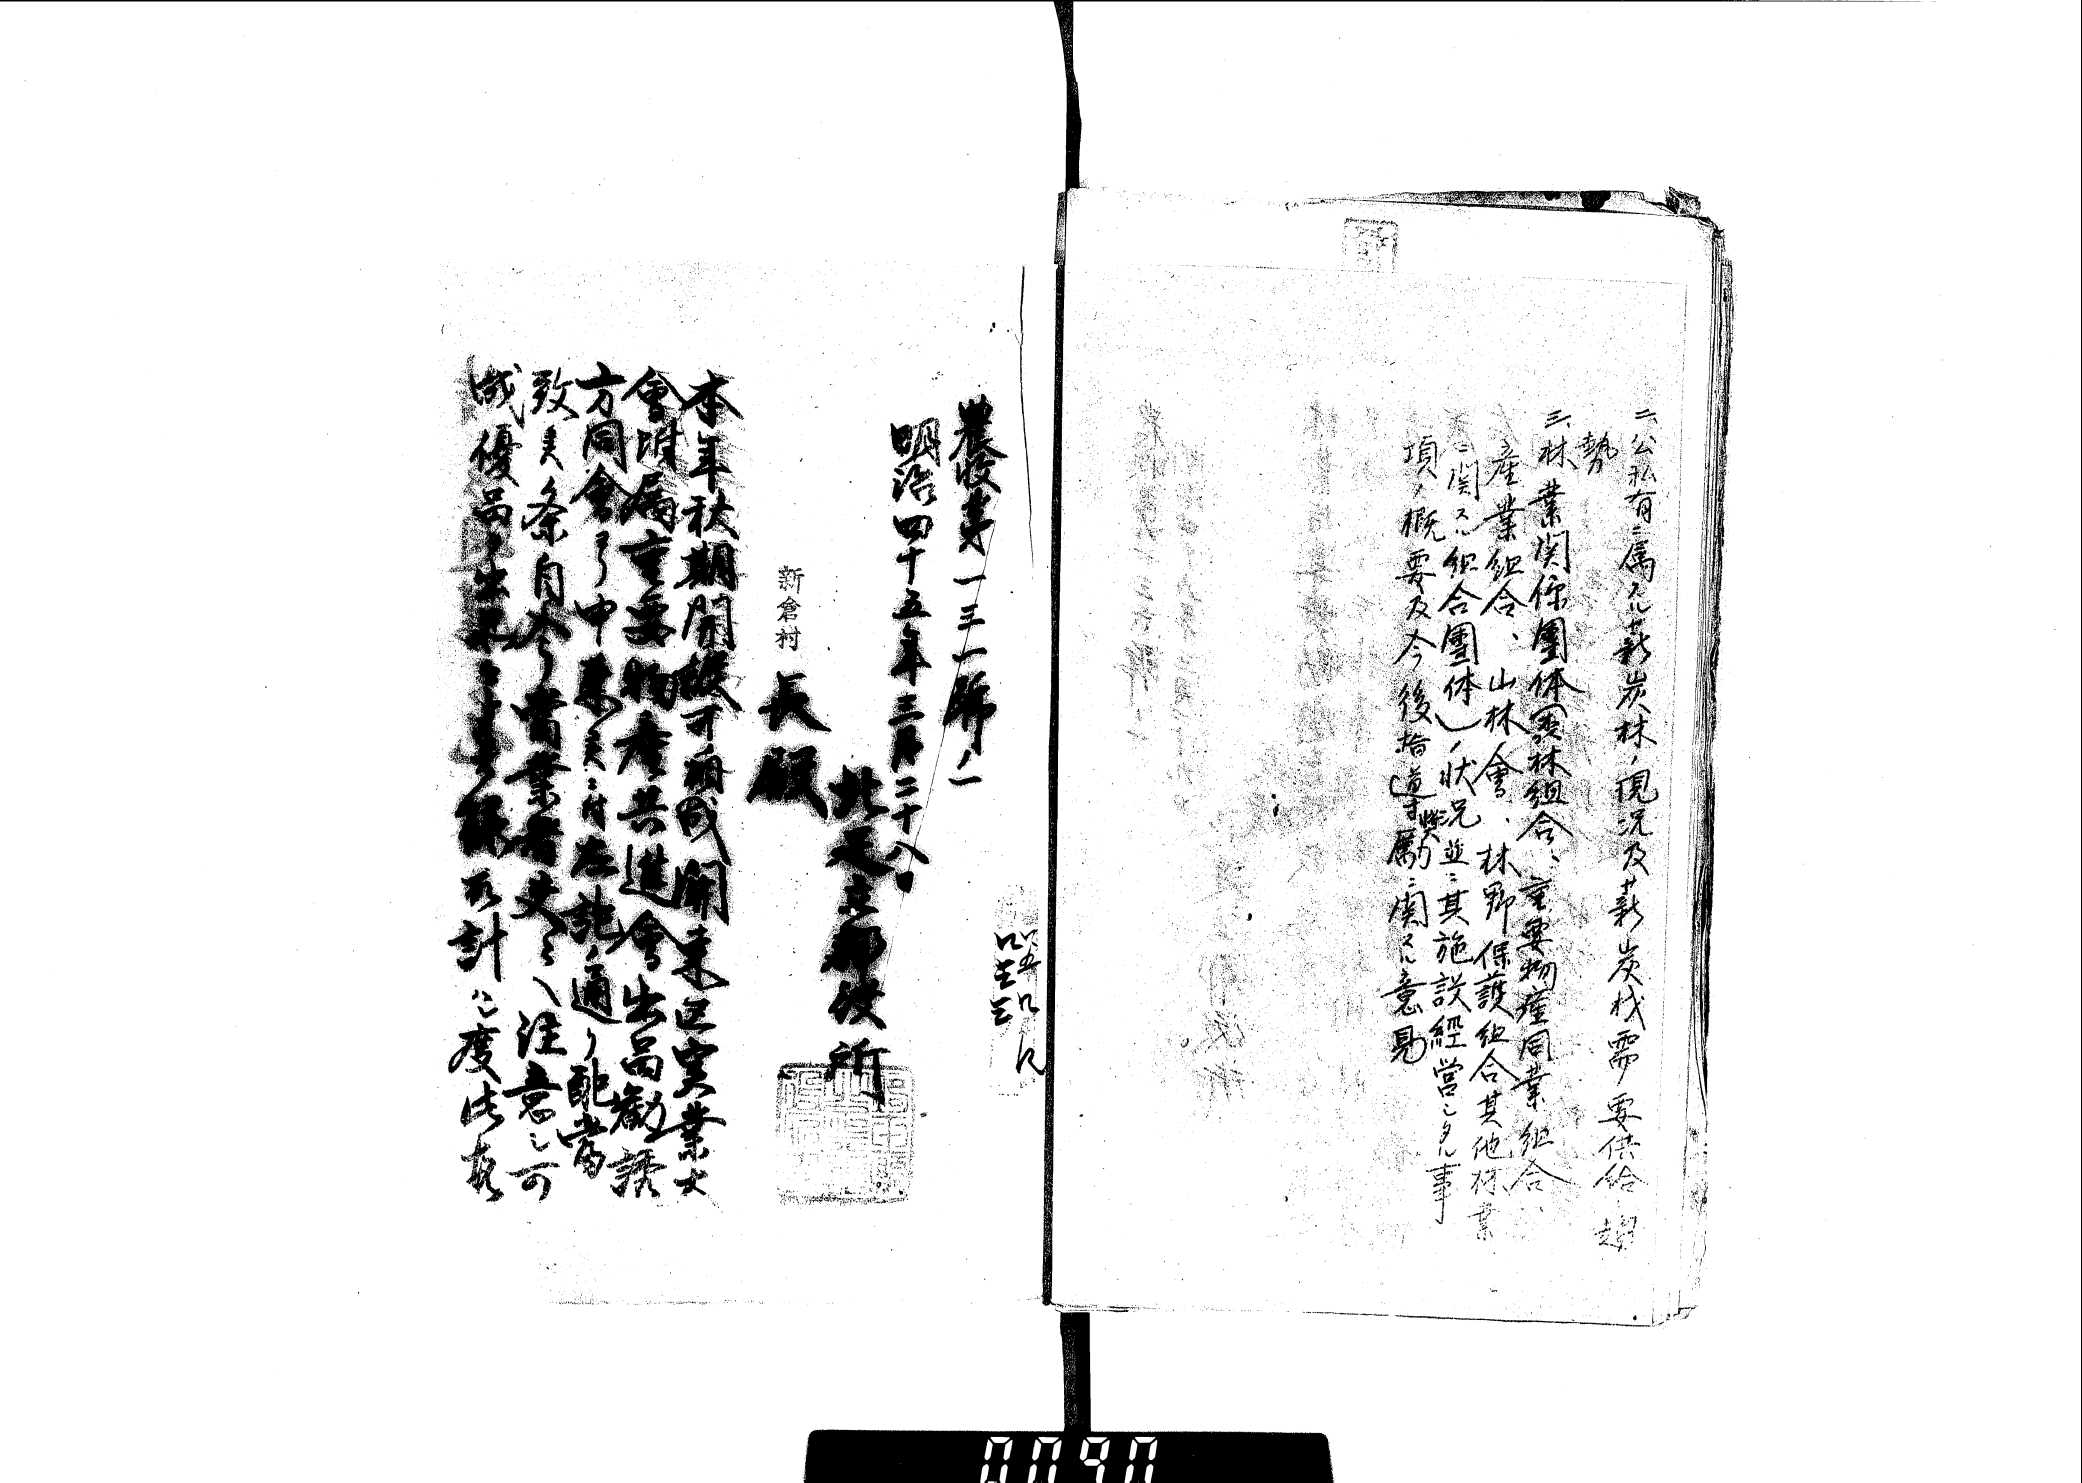 二、公私有ニ属スル薪炭林ノ現況及薪炭材需要供給ノ趨
勢
三、林業関係團体(森林組合、重要物産同業組合、
産業組合、山林會、林野保護組合其他林業
ニ関スル組合團体)ノ状況並ニ其施設経営シタル事
項ノ概要及今後指導奨励ニ関スル意見
農收第一三一號ノ一
明治四十五年三月二十八日
北足立郡役所
新倉村長殿
本年秋期開設可相成関東区実業大
會附属重要物産共進會出品勧誘
方同會ヨリ申来候ニ付左記ノ通リ配當
致候条自今當業者ヘ注意シ可
成優品ヲ出
計ハレ度此段
0090